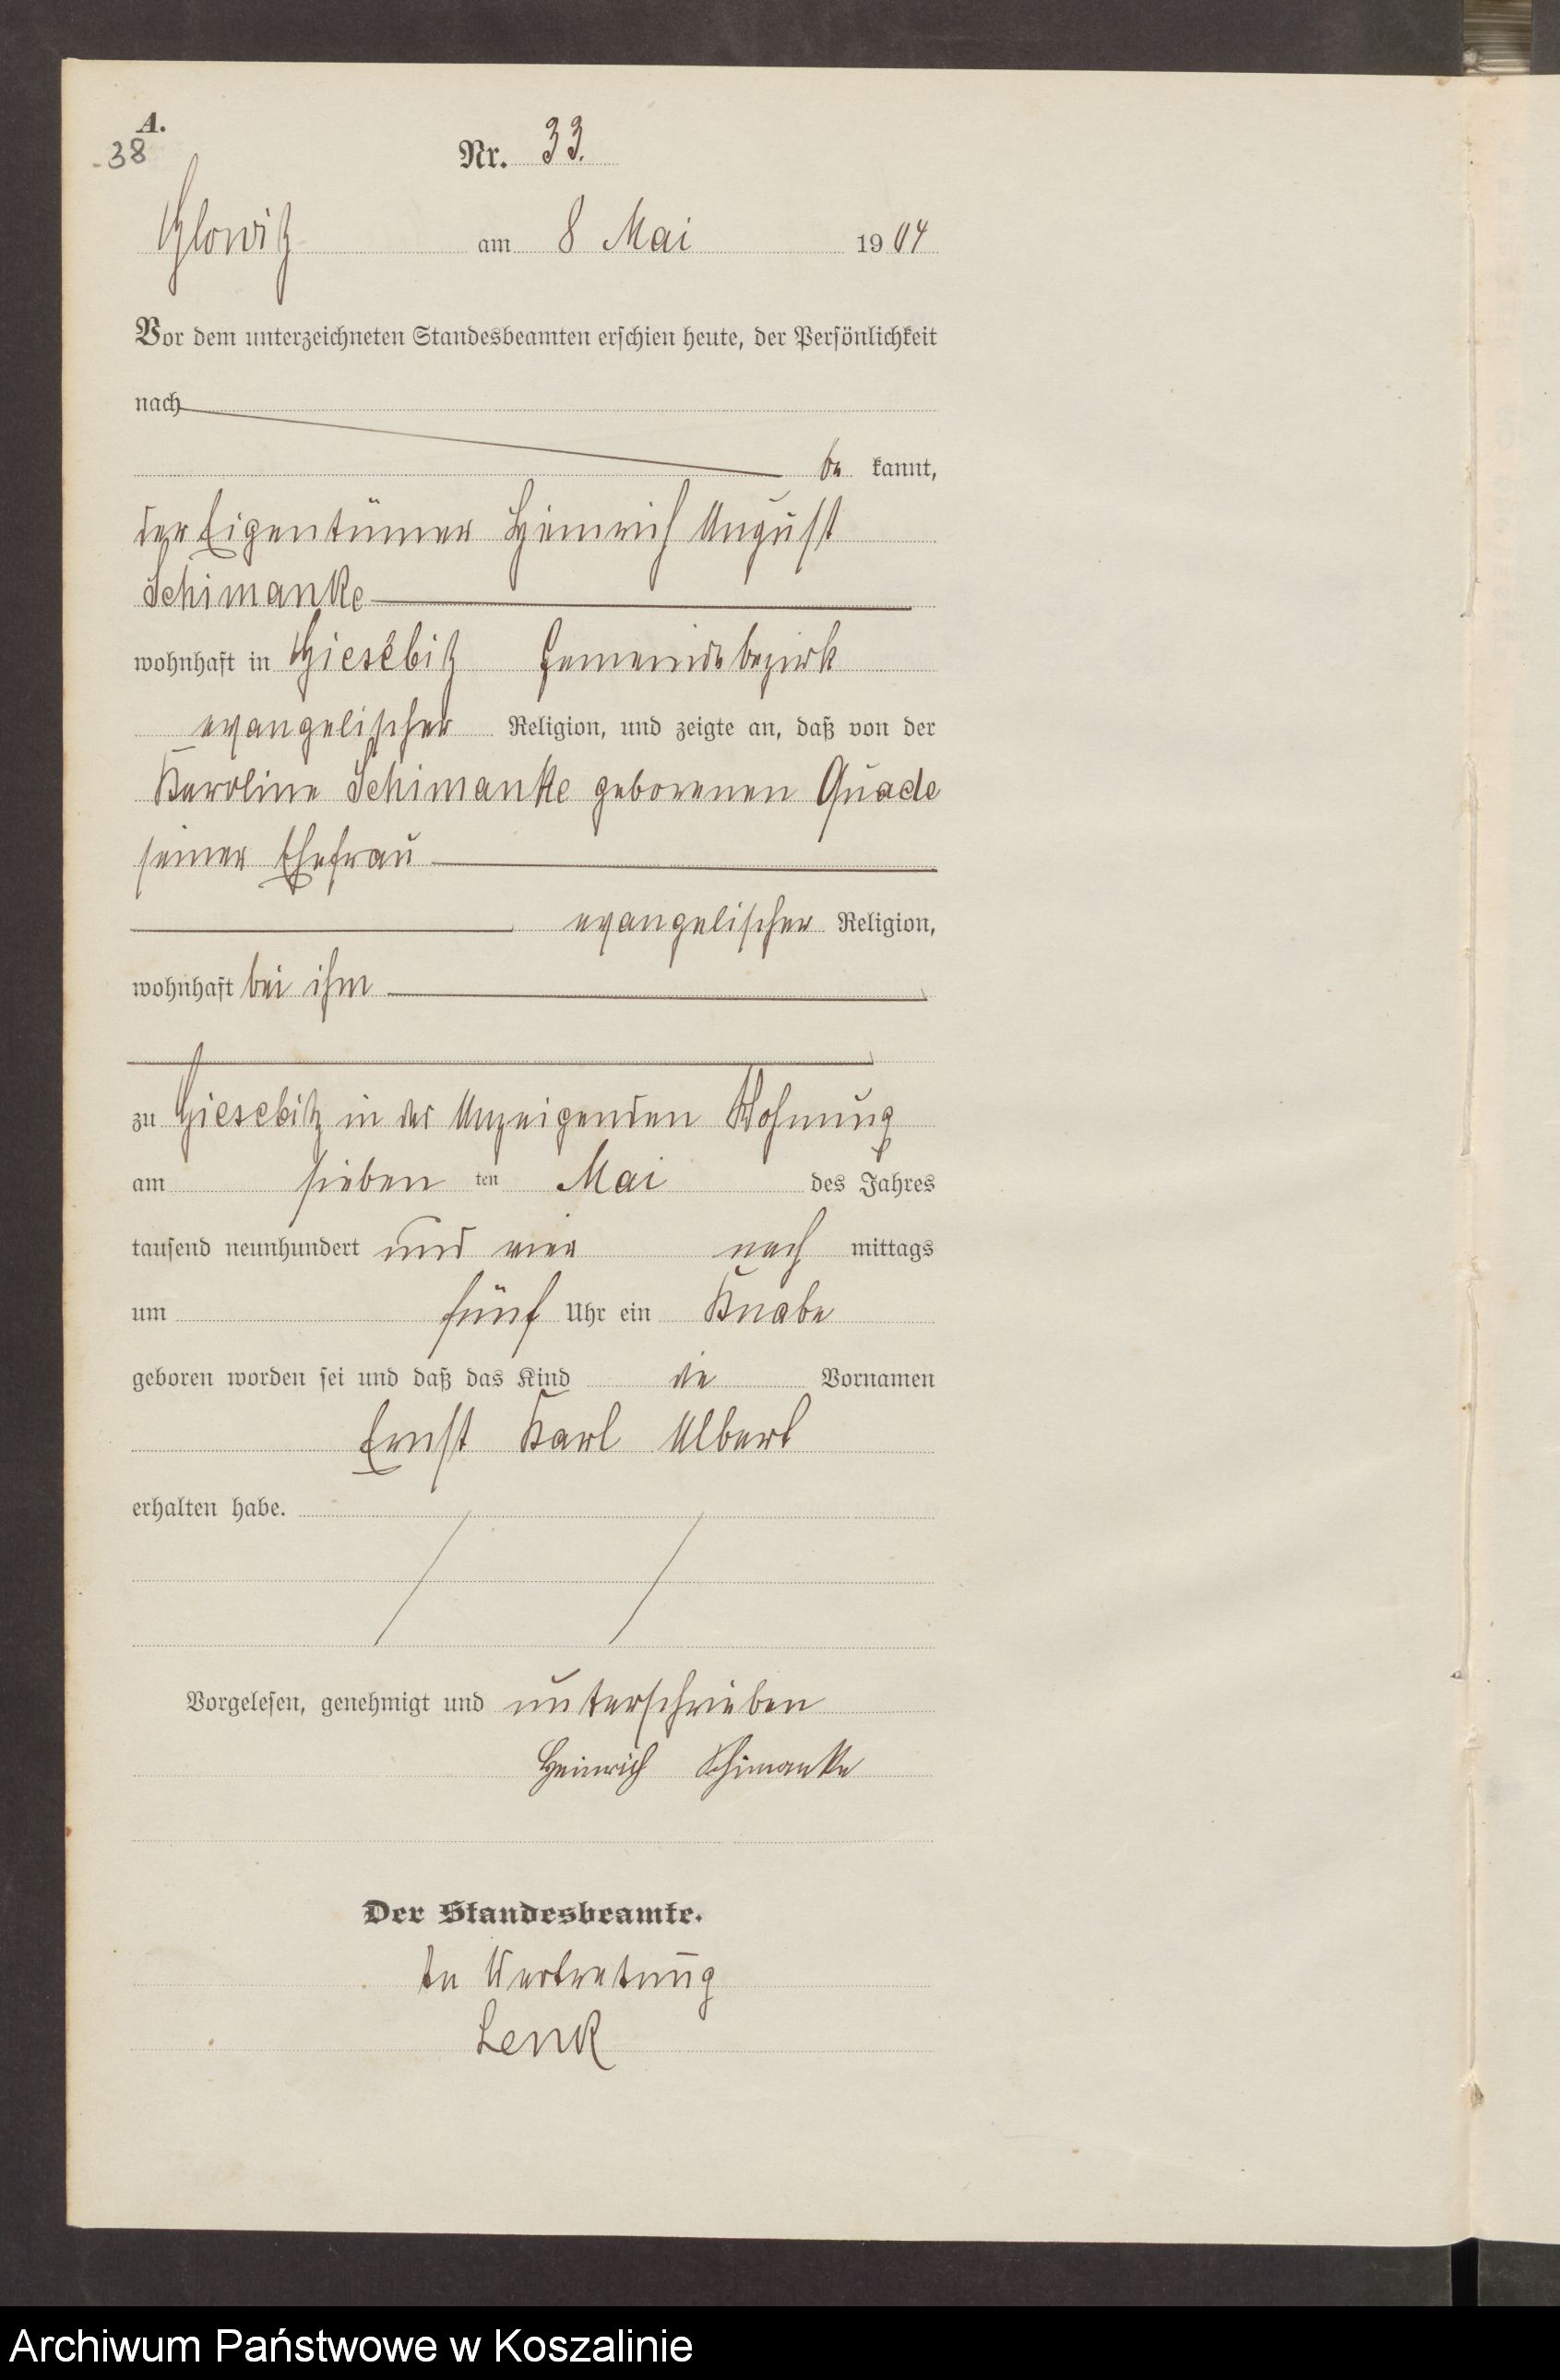 A.
-38
Nr. 33.
Glowitz am 8 Mai 1904
Vor dem unterzeichneten Standesbeamten erschien heute, der Persönlichkeit
nach
be kannt,
der Eigentümer Heinrich August
Schimanke
wohnhaft in Giesebitz Gemeindebezirk
evangelischer Religion, und zeigte an, daß von der
Karoline Schimanke geborenen Quade
seiner Ehefrau
evangelischer Religion,
wohnhaft bei ihm
zu Giesebitz in des Anzeigenden Wohnung
am sieben ten Mai des Jahres
tausend neunhundert und vier nach mittags
um fünf Uhr ein Knabe
geboren worden sei und daß das Kind die Vornamen
Ernst Karl Albert
erhalten habe.
Vorgelesen, genehmigt und unterschrieben
Heinrich Schimanke
Der Standesbeamte.
In Vertretung
Lenk
Archiwum Państwowe w Koszalinie